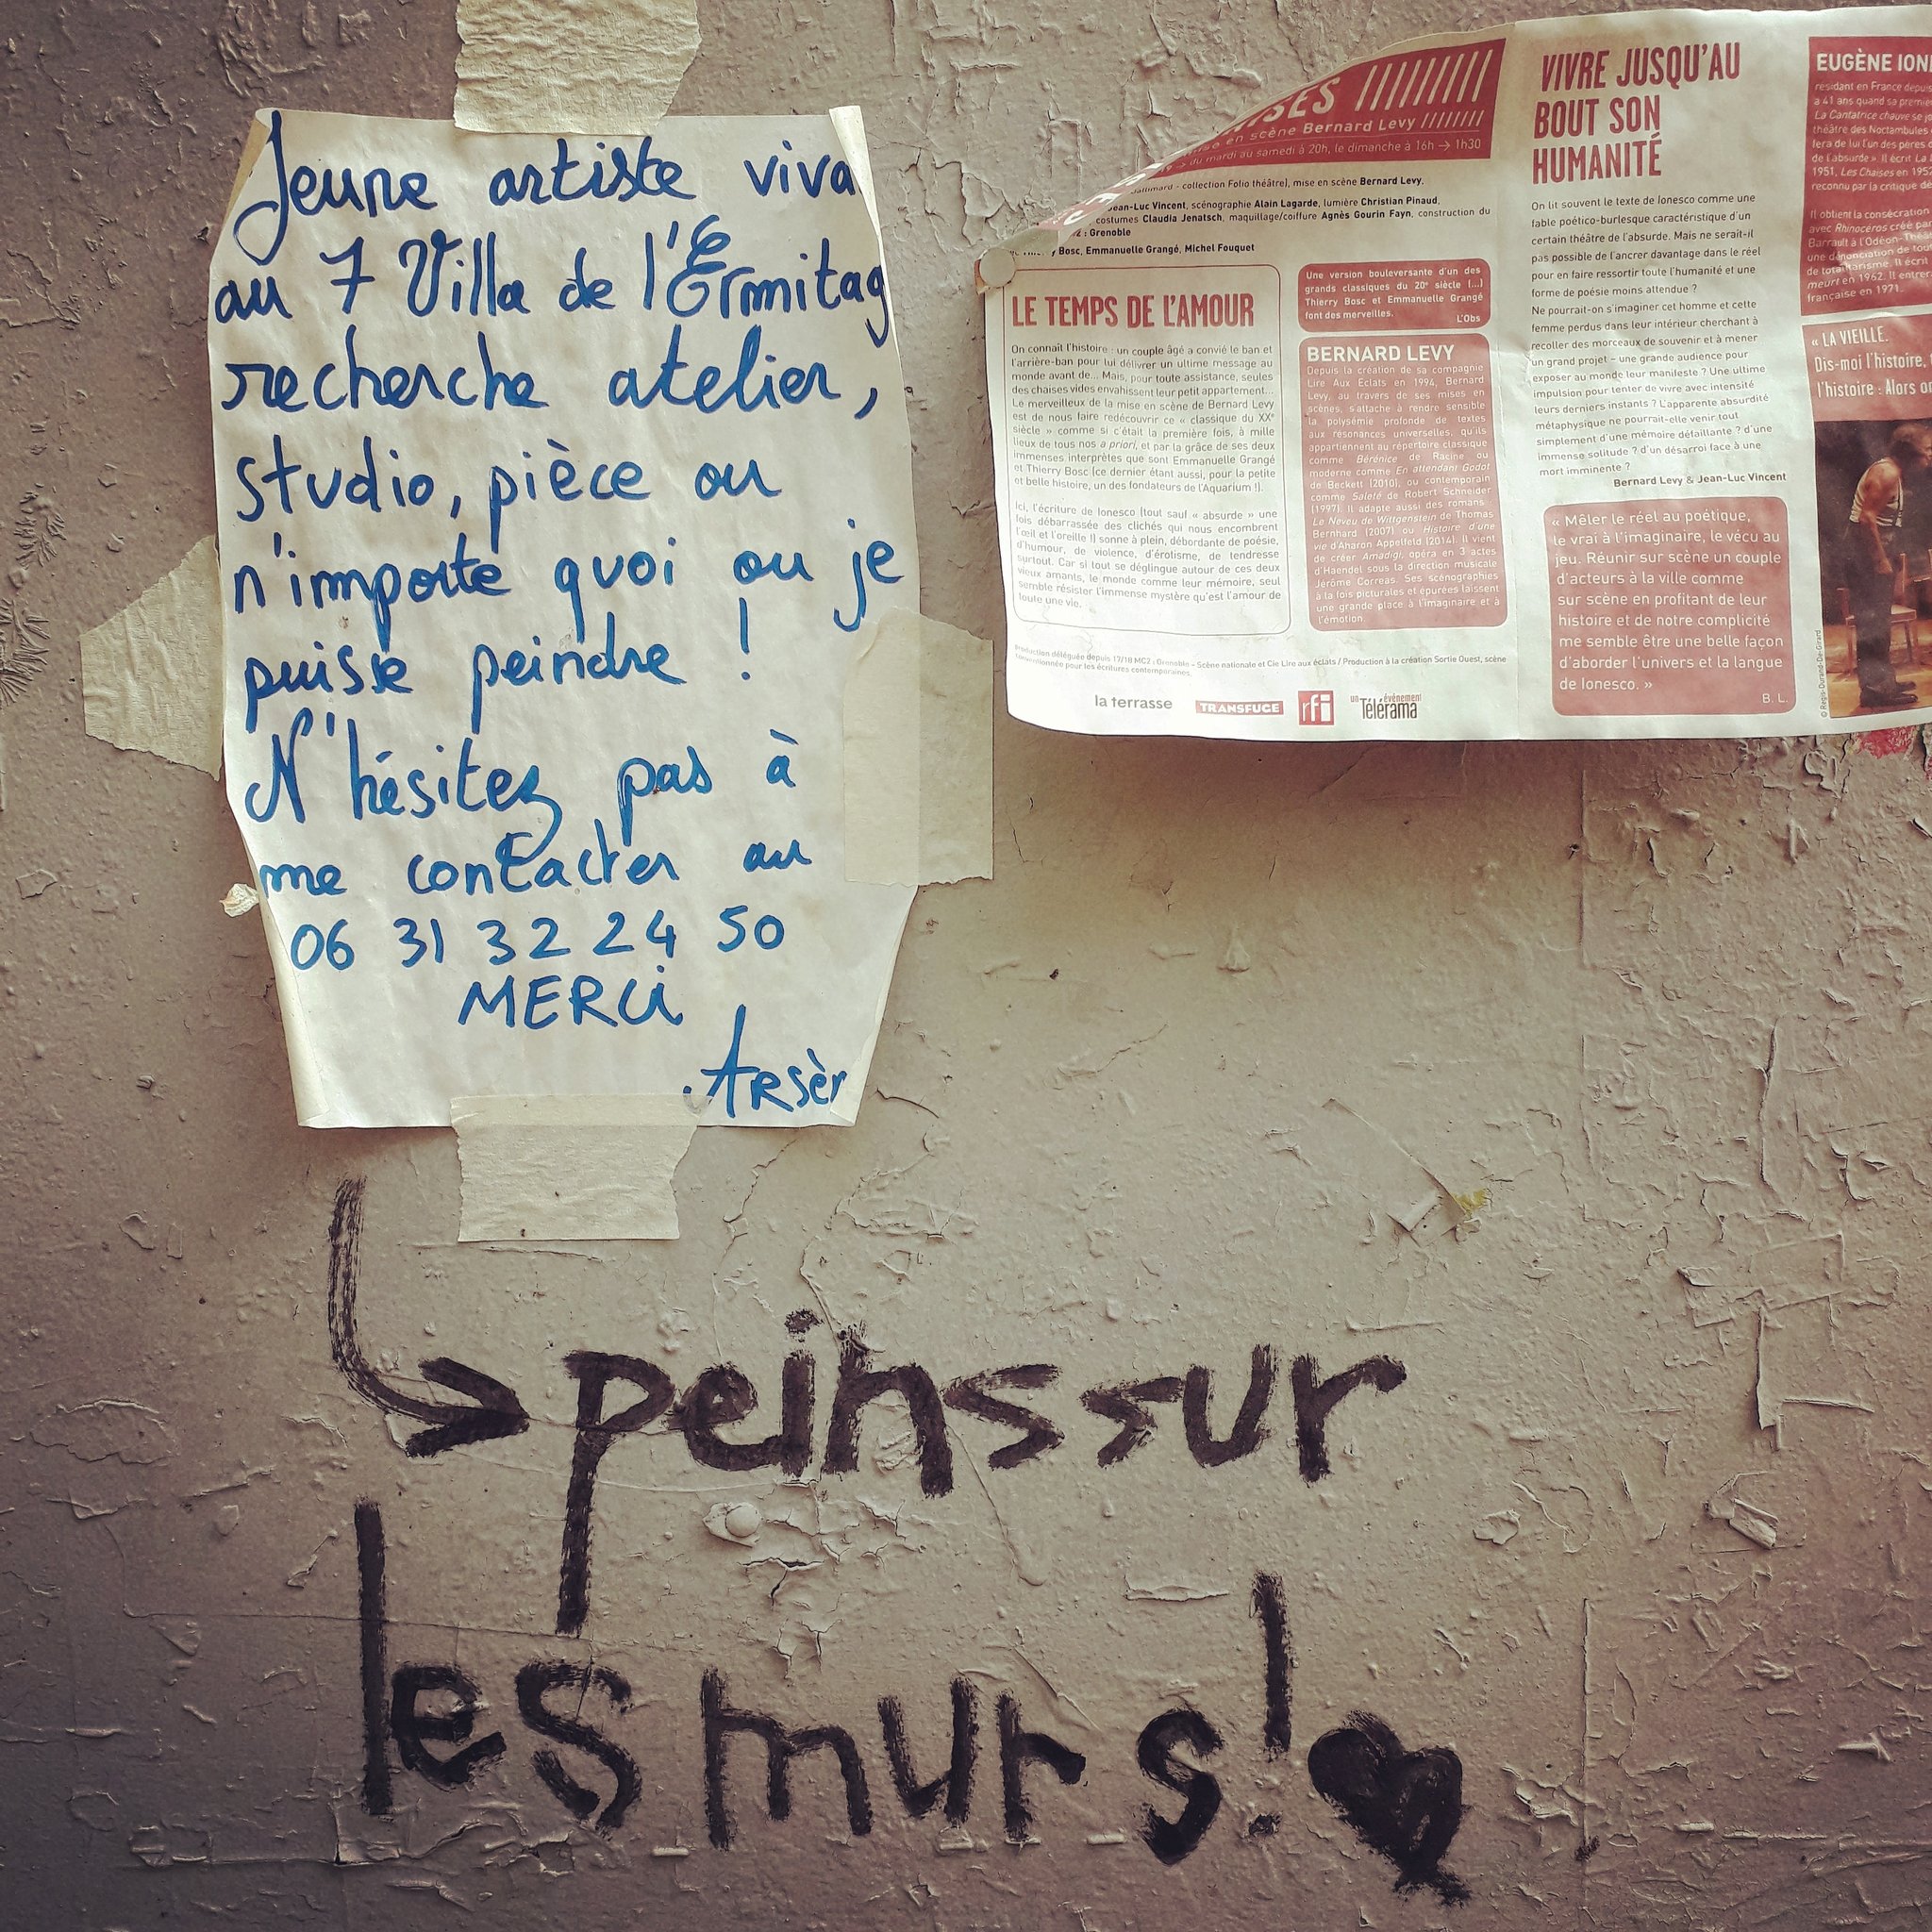 Jeune artiste viva
au 7 Villa de l'Ermitag
recherche atelier,
studio, pièce ou
n'importe quoi ou je
puisse peindre !
N'hésitez pas à
me contacter au
06 31 32 24 50
MERCi
Arsèn
peins sur
les murs!
en scène Bernard Levy
du mardi au samedi à 20h, le dimanche à 16h → 1h30
- collection Folio théâtre), mise en scène Bernard Levy.
Jean-Luc Vincent, scénographie Alain Lagarde, lumière Christian Pinaud,
costumes Claudia Jenatsch, maquillage/coiffure Agnès Gourin Fayn, construction du
: Grenoble
Bosc, Emmanuelle Grangé, Michel Fouquet
LE TEMPS DE L'AMOUR
On connaît l'histoire : un couple âgé a convié le ban et
l'arrière-ban pour lui délivrer un ultime message au
monde avant de... Mais, pour toute assistance, seules
des chaises vides envahissent leur petit appartement...
Le merveilleux de la mise en scène de Bernard Levy
est de nous faire redécouvrir ce « classique du XXe
siècle » comme si c'était la première fois, à mille
lieux de tous nos a priori, et par la grâce de ses deux
immenses interprètes que sont Emmanuelle Grangé
et Thierry Bosc (ce dernier étant aussi, pour la petite
et belle histoire, un des fondateurs de l'Aquarium !).
Ici, l'écriture de Ionesco (tout sauf « absurde » une
fois débarrassée des clichés qui nous encombrent
l'œil et l'oreille !) sonne à plein, débordante de poésie,
d'humour, de violence, d'érotisme, de tendresse
surtout. Car si tout se déglingue autour de ces deux
vieux amants, le monde comme leur mémoire, seul
semble résister l'immense mystère qu'est l'amour de
toute une vie.
Une version bouleversante d'un des
grands classiques du 20e siècle (...)
Thierry Bosc et Emmanuelle Grangé
font des merveilles.
L'Obs
BERNARD LEVY
Depuis la création de sa compagnie
Lire Aux Eclats en 1994, Bernard
Levy, au travers de ses mises en
scènes, s'attache à rendre sensible
la polysémie profonde de textes
aux résonances universelles, qu'ils
appartiennent au répertoire classique
comme Bérénice de Racine ou
moderne comme En attendant Godot
de Beckett (2010), ou contemporain
comme Saleté de Robert Schneider
(1997). Il adapte aussi des romans :
Le Neveu de Wittgenstein de Thomas
Bernhard (2007) ou Histoire d'une
vie d'Aharon Appelfeld (2014). Il vient
de créer Amadigi, opéra en 3 actes
d'Haendel sous la direction musicale
Jérôme Correas. Ses scénographies
à la fois picturales et épurées laissent
une grande place à l'imaginaire et à
l'émotion.
Production déléguée depuis 17/18 MC2 : Grenoble – Scène nationale et Cie Lire aux éclats / Production à la création Sortie Ouest, scène
conventionnée pour les écritures contemporaines.
la terrasse TRANSFUGE rfi un événement Télérama
VIVRE JUSQU'AU
BOUT SON
HUMANITÉ
On lit souvent le texte de Ionesco comme une
fable poético-burlesque caractéristique d'un
certain théâtre de l'absurde. Mais ne serait-il
pas possible de l'ancrer davantage dans le réel
pour en faire ressortir toute l'humanité et une
forme de poésie moins attendue ?
Ne pourrait-on s'imaginer cet homme et cette
femme perdus dans leur intérieur cherchant à
recoller des morceaux de souvenir et à mener
un grand projet – une grande audience pour
exposer au monde leur manifeste ? Une ultime
impulsion pour tenter de vivre avec intensité
leurs derniers instants ? L'apparente absurdité
métaphysique ne pourrait-elle venir tout
simplement d'une mémoire défaillante ? d'une
immense solitude ? d'un désarroi face à une
mort imminente ?
Bernard Levy & Jean-Luc Vincent
« Mêler le réel au poétique,
le vrai à l'imaginaire, le vécu au
jeu. Réunir sur scène un couple
d'acteurs à la ville comme
sur scène en profitant de leur
histoire et de notre complicité
me semble être une belle façon
d'aborder l'univers et la langue
de Ionesco. »
B. L.
EUGÈNE ION
résidant en France depuis
a 41 ans quand sa premi
La Cantatrice chauve se jo
théâtre des Noctambules
fera de lui l'un des pères
de l'absurde ». Il écrit La
1951, Les Chaises en 1952
reconnu par la critique de
Il obtient la consécration
avec Rhinocéros créé par
Barrault à l'Odéon-Théâ
une dénonciation de tou
de totalitarisme. Il écrit
meurt en 1962. Il entre
française en 1971.
« LA VIEILLE.
Dis-moi l'histoire,
l'histoire : Alors o
© Régis-Durand-De-Girard